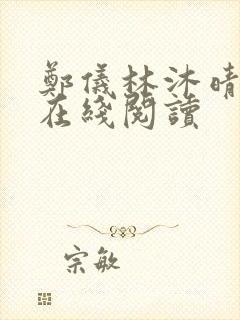 鄭儀林沐晴
在綫閱讀
宗敏